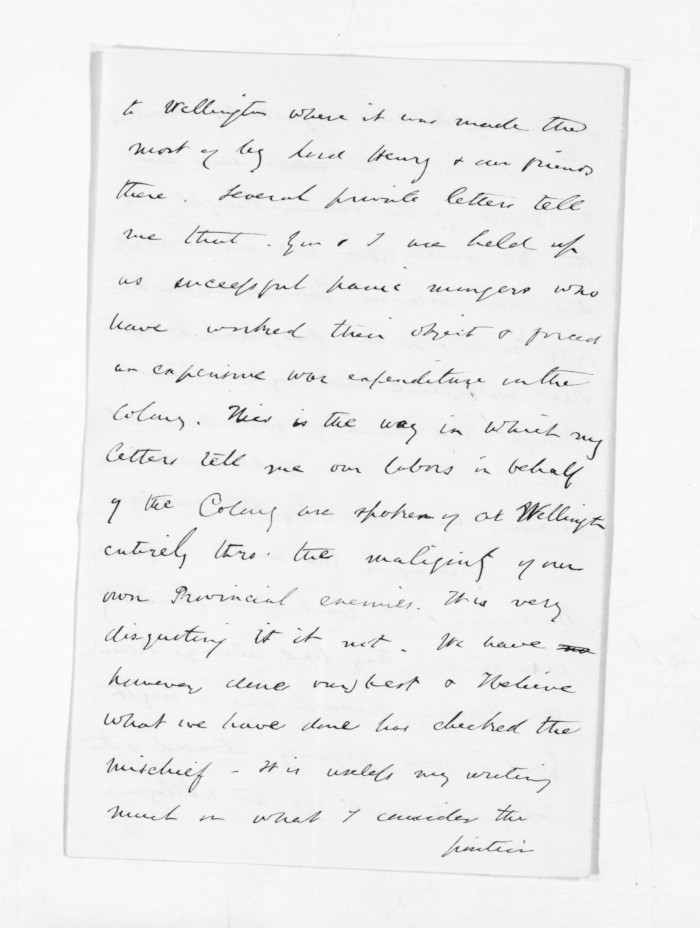 to Wellington where it was made the
most of by Lord Henry & our friends
there. Several private letters tell
me that. You & I are held up
as successful panic mongers who
have worked their object & forced
an expensive war expenditure in the
Colony. This is the way in which my
letters tell me our labors in behalf
of the Colony are spoken of at Wellington
entirely thro. the malignity of our
own Provincial enemies. It is very
disgusting is it not. We have
however done our best & I believe
what we have done has checked the
mischief - It is useless my writing
much on what I consider the
position